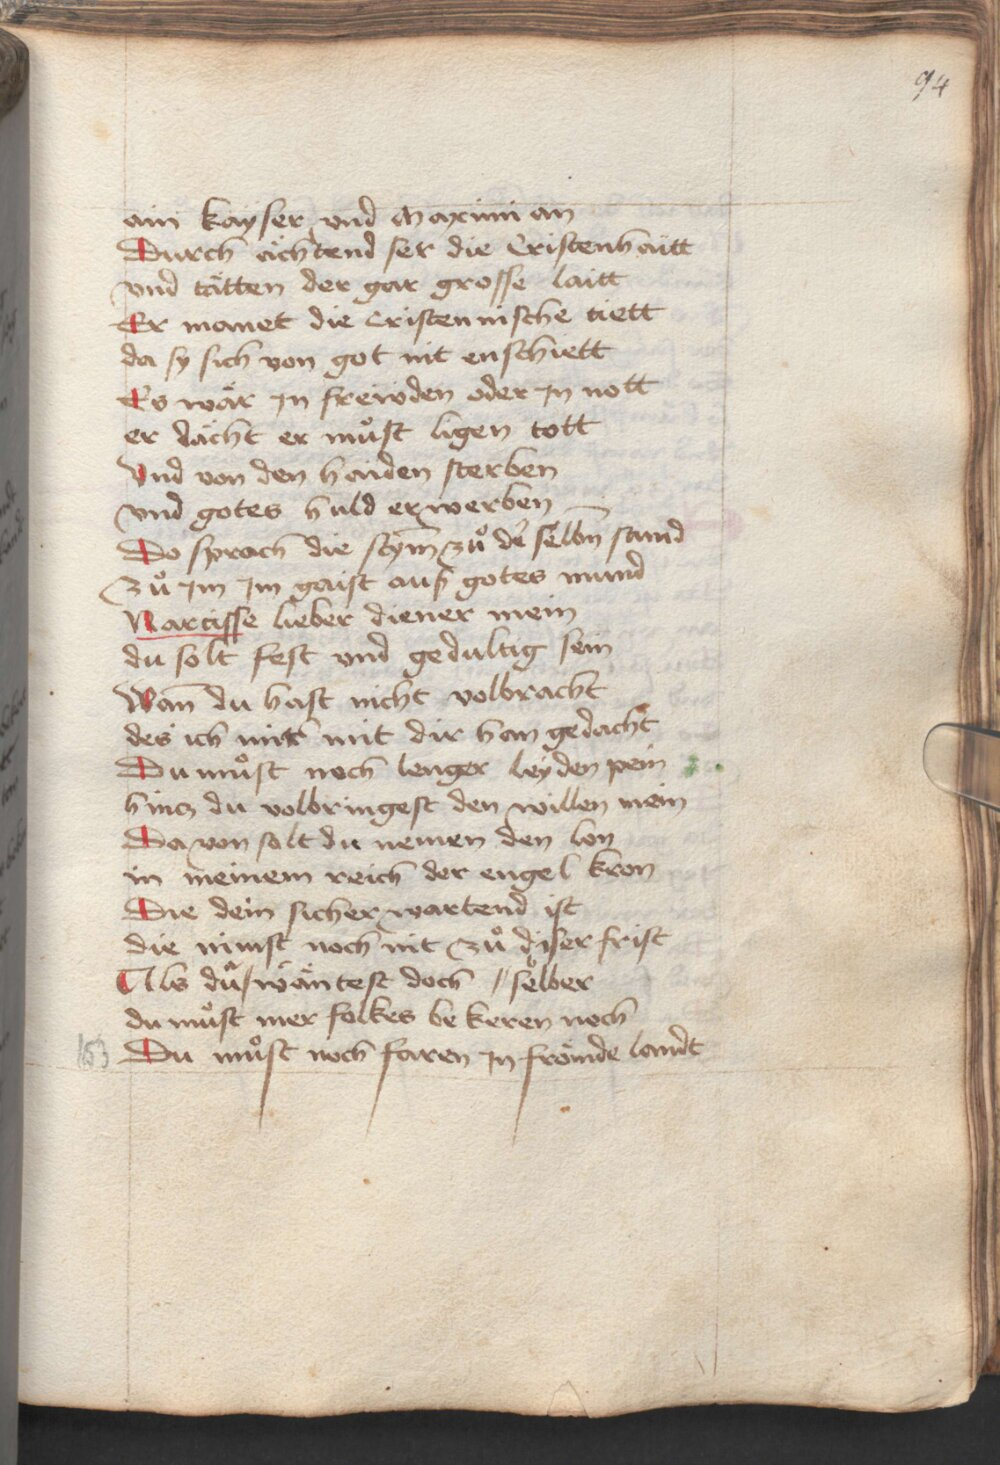 94
ain kayser vnd Maximian
Durch ächtend ser die Cristenhaitt
vnd tätten der gar grosse laitt
Er manet die Cristennische tiett
da sy sich von got nit enschiett
Es wär Jn frewden oder Jn nott
er dächt er muͦst ligen tott
Vnd von den haiden sterben
vnd gotes huld erwerben
Do sprach die stym̄ zuͦ der selbn̄ stund
zuͦ Jm Jm gaist auß gotes mund
Narcisse lieber diener mein
du solt fest vnd gedultig sein
Wan̄ du hast nicht volbracht
des ich mit dir han gedacht
Du muͦst noch lenger leyden pein
hincz du volbringest den willen mein
Da von solt du nemen den lon
in meinem reich der engel kron
Die dein sicher wartend ist
die nimst noch nit zuͦ diser frist
Als du wäntest doch selber
du muͦst mer folkes bekeren noch
Du muͦst noch faren Jn frömde landt